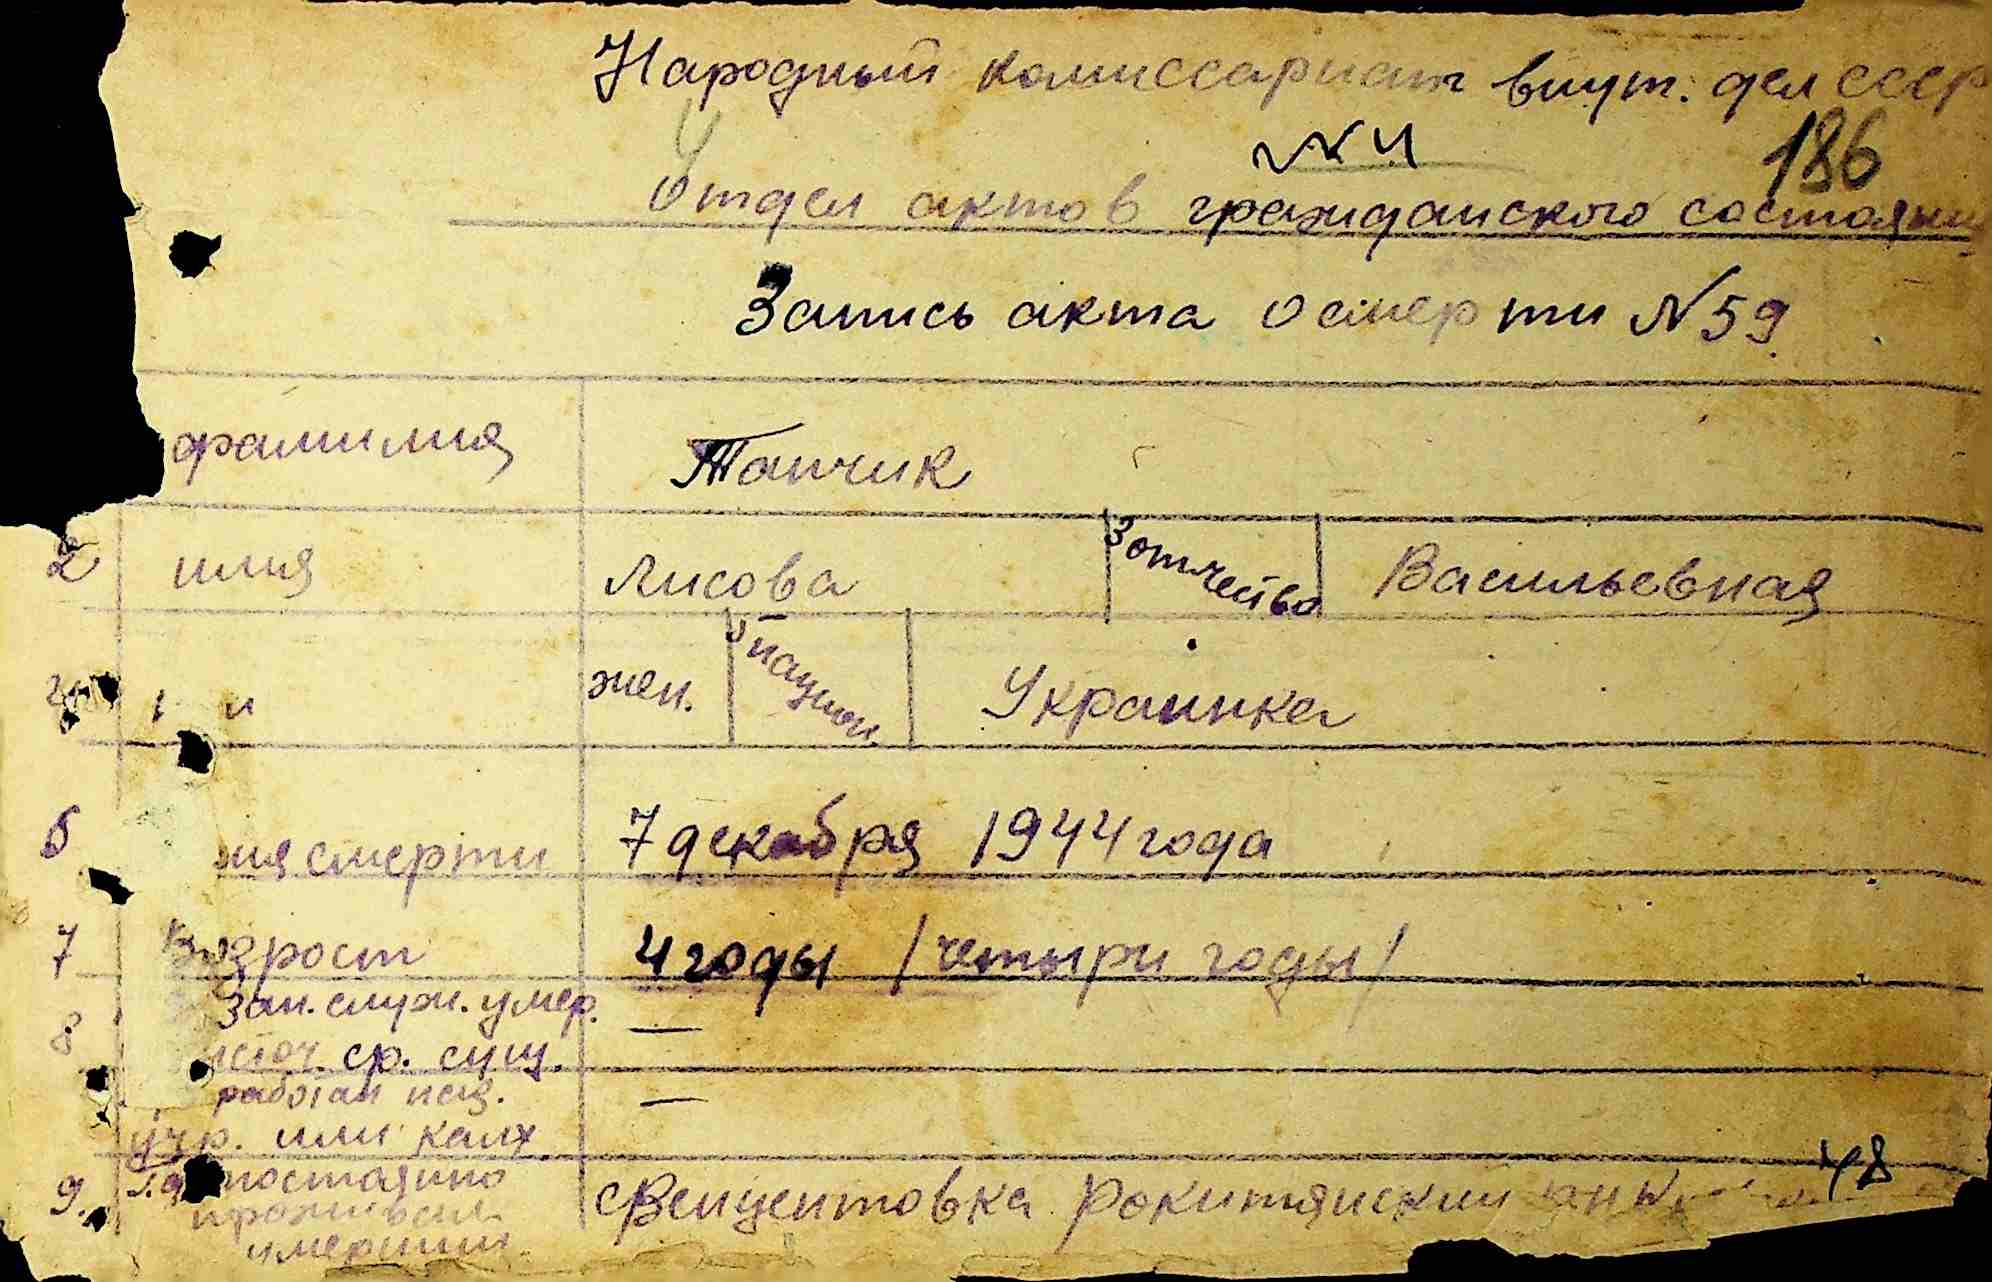 Народный комиссариат внут. дел СССР
№ 4
186
Отдел актов гражданского состояни
Запись акта о смерти № 59
фамилия Танчик
2 имя Лисова 3 отчество Васильевная
жен. национ. Украинка
6 смерти 7 декабря 1944 года
7 Возрост 4 годы /четыри годы/
8 зан. служ. умер. —
источ. ср. сущ.
работан —
учр. или колх.
9. постаяно свенцентовка Рокитянский 48
проживал
умерший